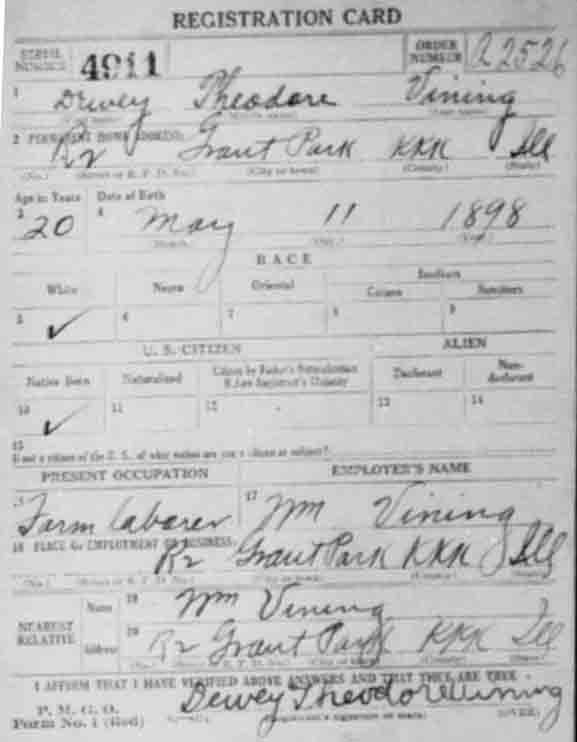 REGISTRATION CARD
SERIAL NUMBER 4911 ORDER NUMBER A2526
1 Dewey Theodore Vining
2 PERMANENT HOME ADDRESS:
R2 Grant Park KKK Ill
(No.) (Street or R. F. D. No.) (City or town) (County) (State)
Age in Years Date of Birth
3 20 4 May 11 1898
(Month) (Day) (Year)
RACE
White Negro Oriental Indian
Citizen Noncitizen
5 ✓ 6 7 8 9
U. S. CITIZEN ALIEN
Native Born Naturalized Citizen by Father's Naturalization Before Registrant's Majority Declarant Non-declarant
10 ✓ 11 12 13 14
15
If not a citizen of the U. S., of what nation are you a citizen or subject?
PRESENT OCCUPATION EMPLOYER'S NAME
Farm Laborer 17 Wm Vining
18 PLACE OF EMPLOYMENT OR BUSINESS:
R2 Grant Park KKK Ill
(No.) (Street or R. F. D. No.) (City or town) (County) (State)
NEAREST RELATIVE
Name 19 Wm Vining
Address 20 R2 Grant Park KKK Ill
(No.) (Street or R. F. D. No.) (City or town) (County) (State)
I AFFIRM THAT I HAVE VERIFIED ABOVE ANSWERS AND THAT THEY ARE TRUE
P. M. G. O.
Form No. 1 (Red) Dewey Theodore Vining
(Registrant's signature or mark) (OVER)